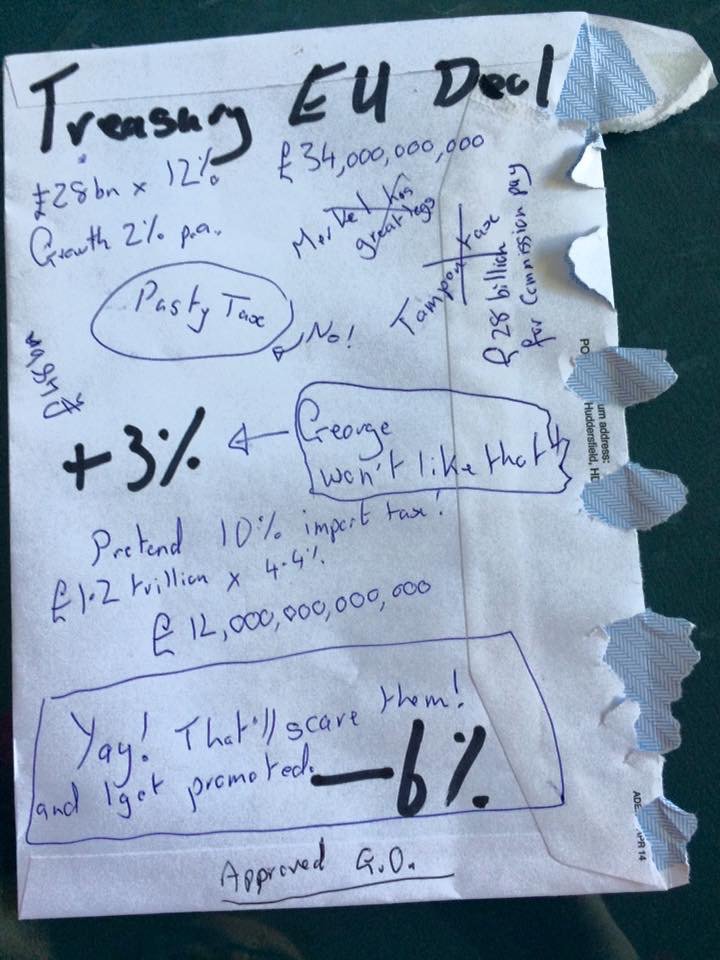 Treasury EU Deal
£28bn x 12%
£34,000,000,000
Growth 2% p.a.
Merkel has
great legs
Tampon tax
£28 billion
for Commission pay
Pasty Tax
No!
+3%
George
won't like that!
Pretend 10% import tax!
£1.2 trillion x 4.4%
£12,000,000,000,000
Yay! That'll scare them!
and I get promoted.
—6%
Approved G.O.
PO
um address:
Huddersfield, HD
ADE
APR 14